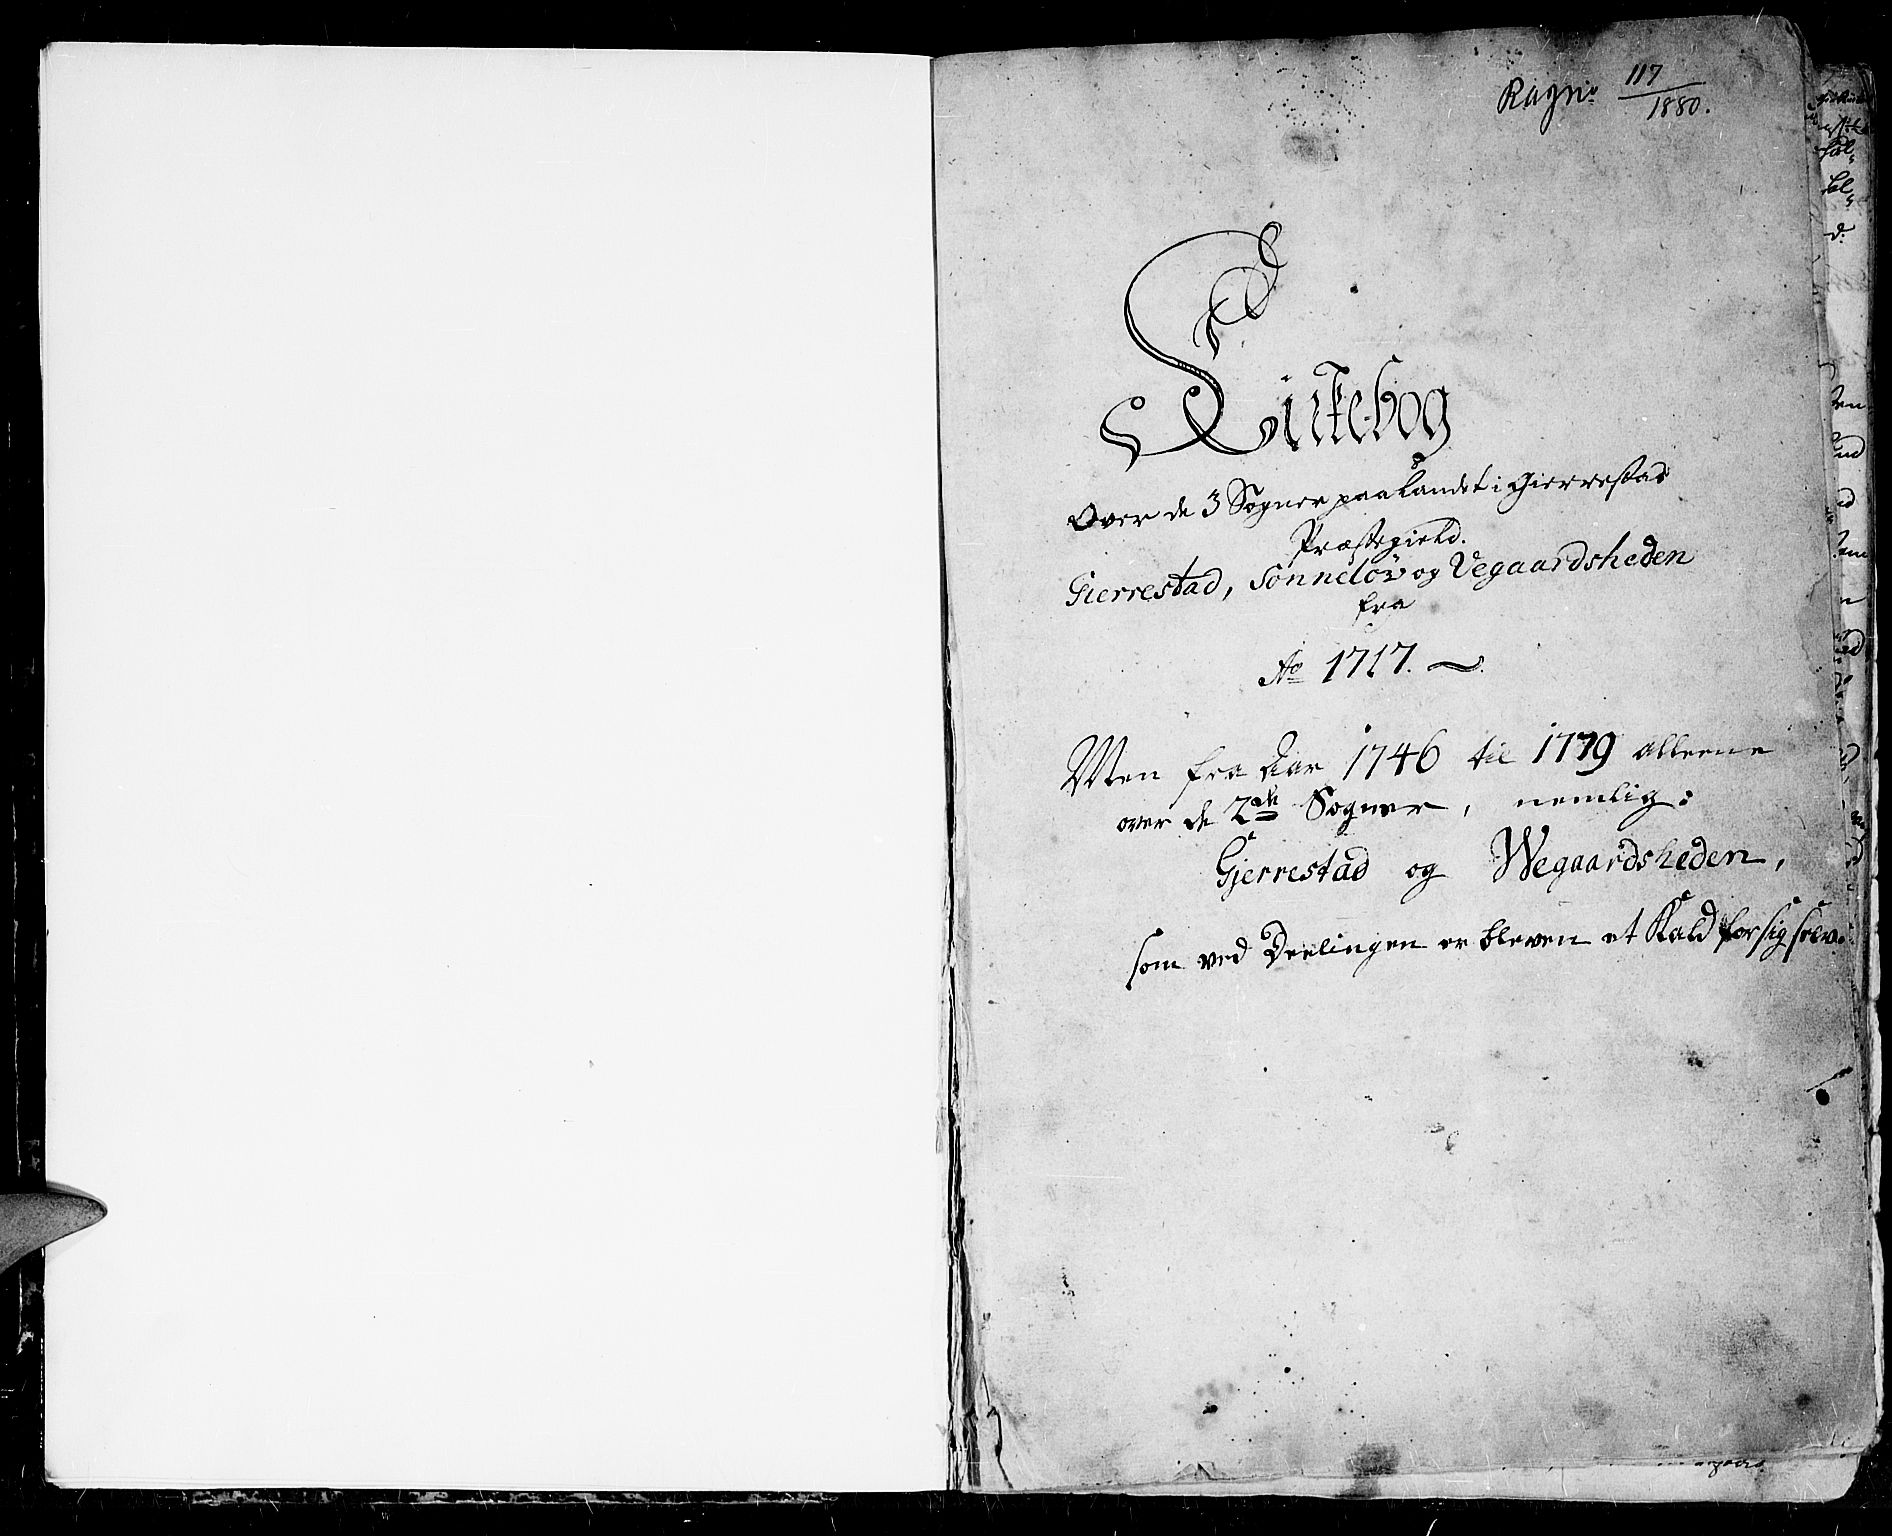 117
1880.
Kirkebog
Over de 3 Sogner paa Landet i Gierrestad
Præstegield.
Gierrestad, Sønneløv og Vegaardsheden
fra
Ao 1717.
Men fra Aar 1746 til 1779 alleene
over de 2de Sogner, nemlig:
Gjerrestad og Wegaardsheden,
som ved Deelingen er bleven et Kald for sig selv.